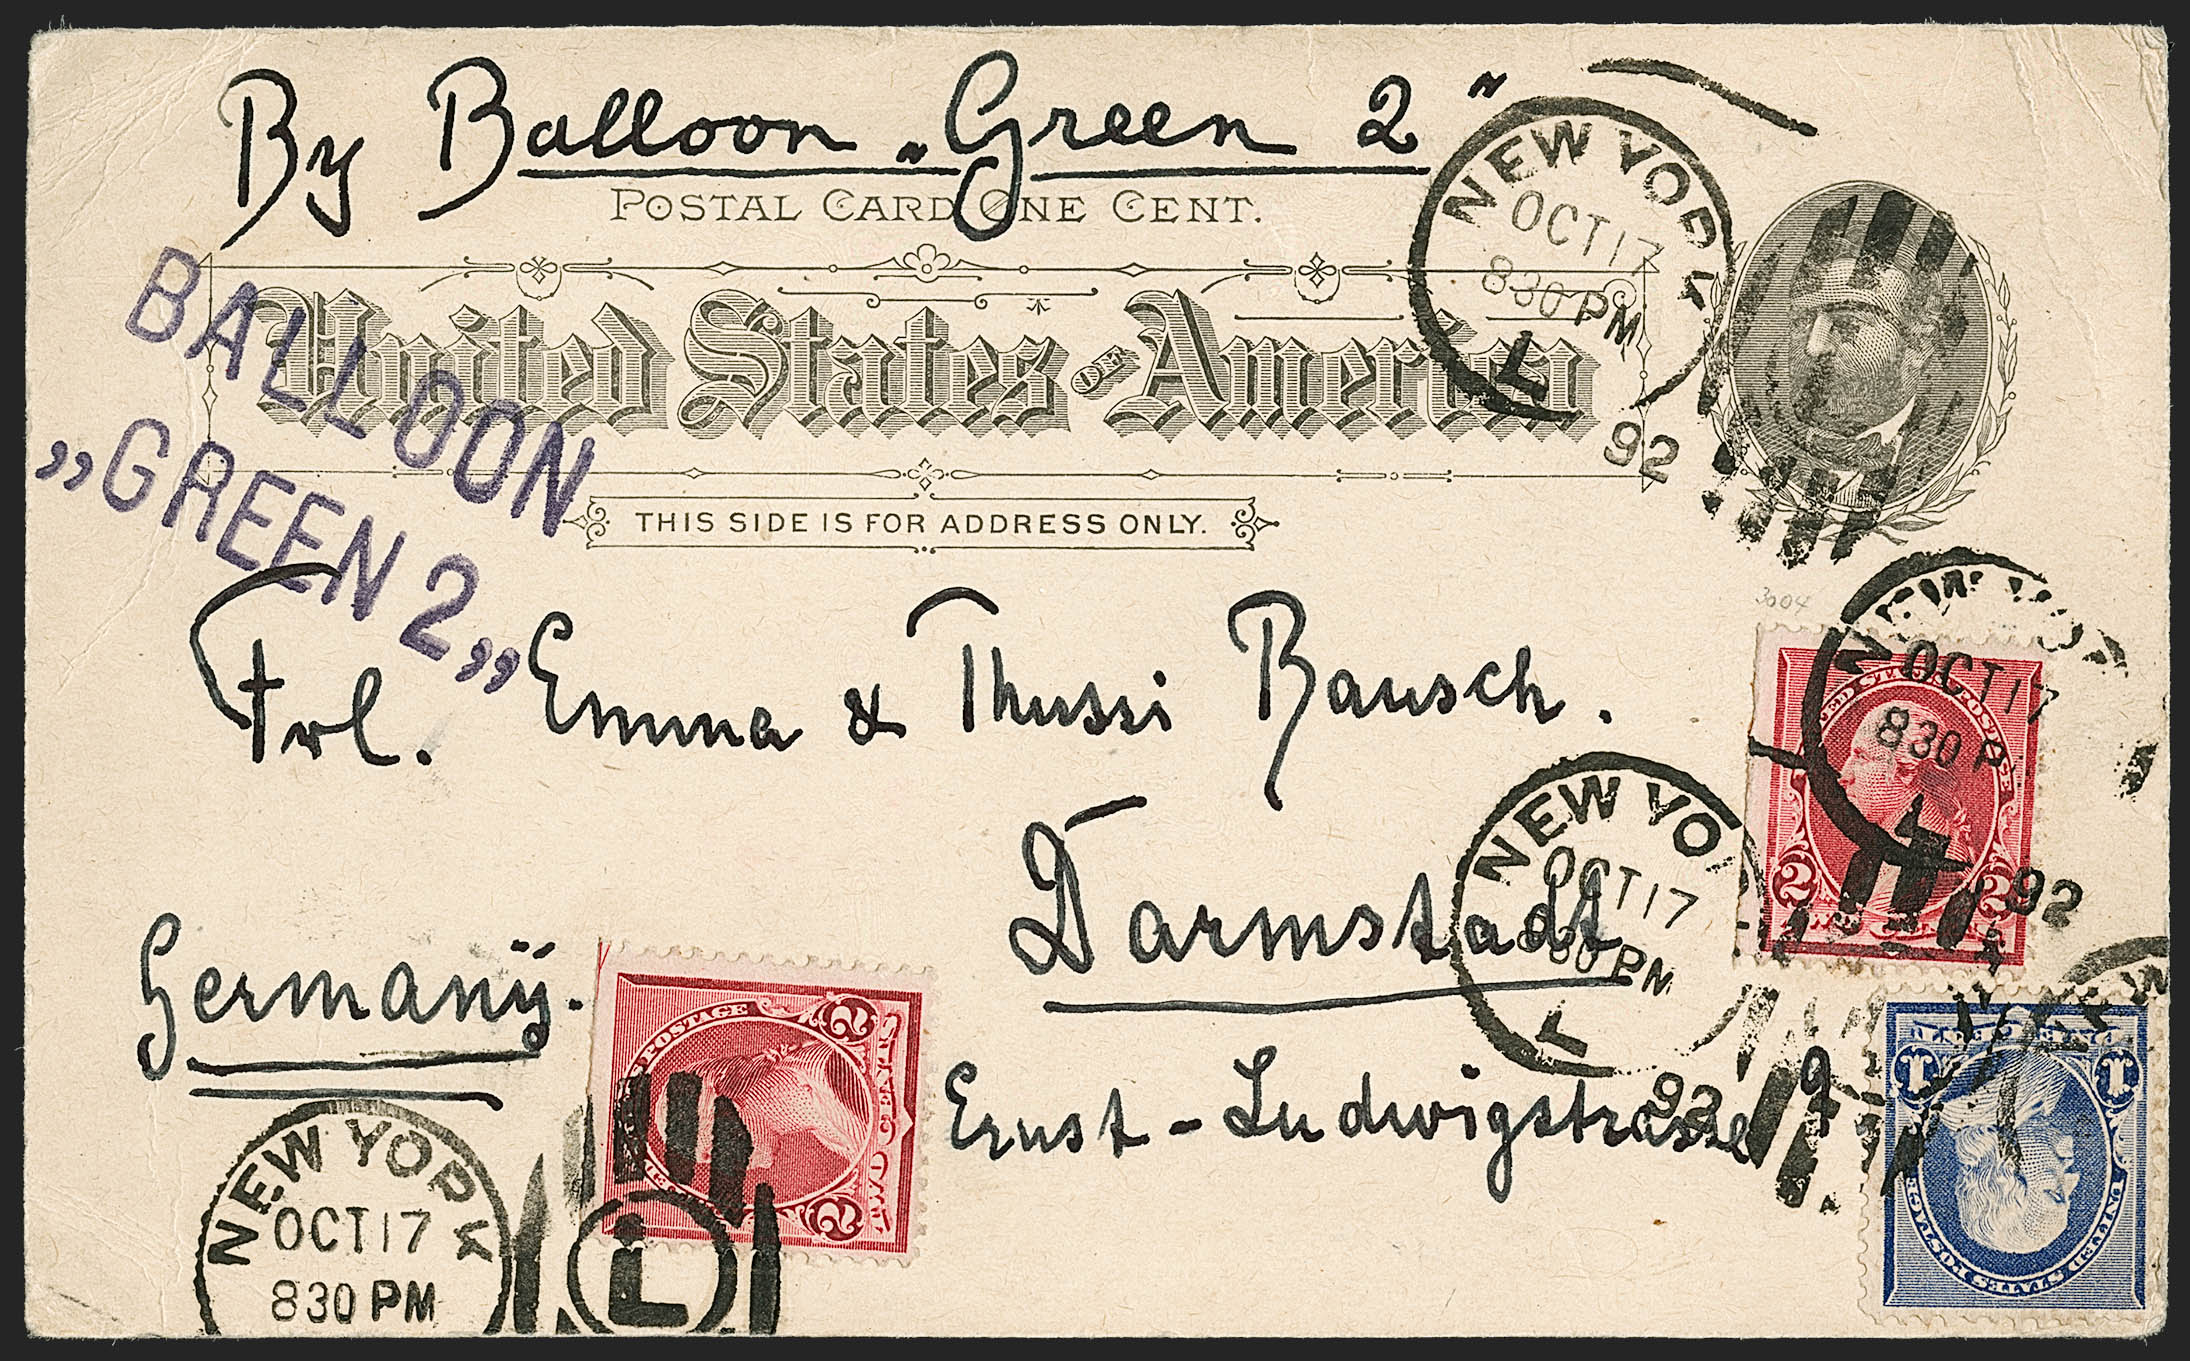 By Balloon „Green 2"
POSTAL CARD ONE CENT.
NEW YORK
OCT 17
830 PM
L
92
United States OF America
THIS SIDE IS FOR ADDRESS ONLY.
BALLOON
„GREEN 2„
3004
Frl. Emma & Thussi Bausch.
NEW YOR
OCT 17
830 P
92
2 2
Darmstadt
NEW YO
OCT 17
830 PM
L
92
Germanÿ.
Ernst-Ludwigstrasse 9
2 2
POSTAGE
NEW YORK
OCT 17
830 PM
L
NEW
1 1
UNITED STATES POSTAGE